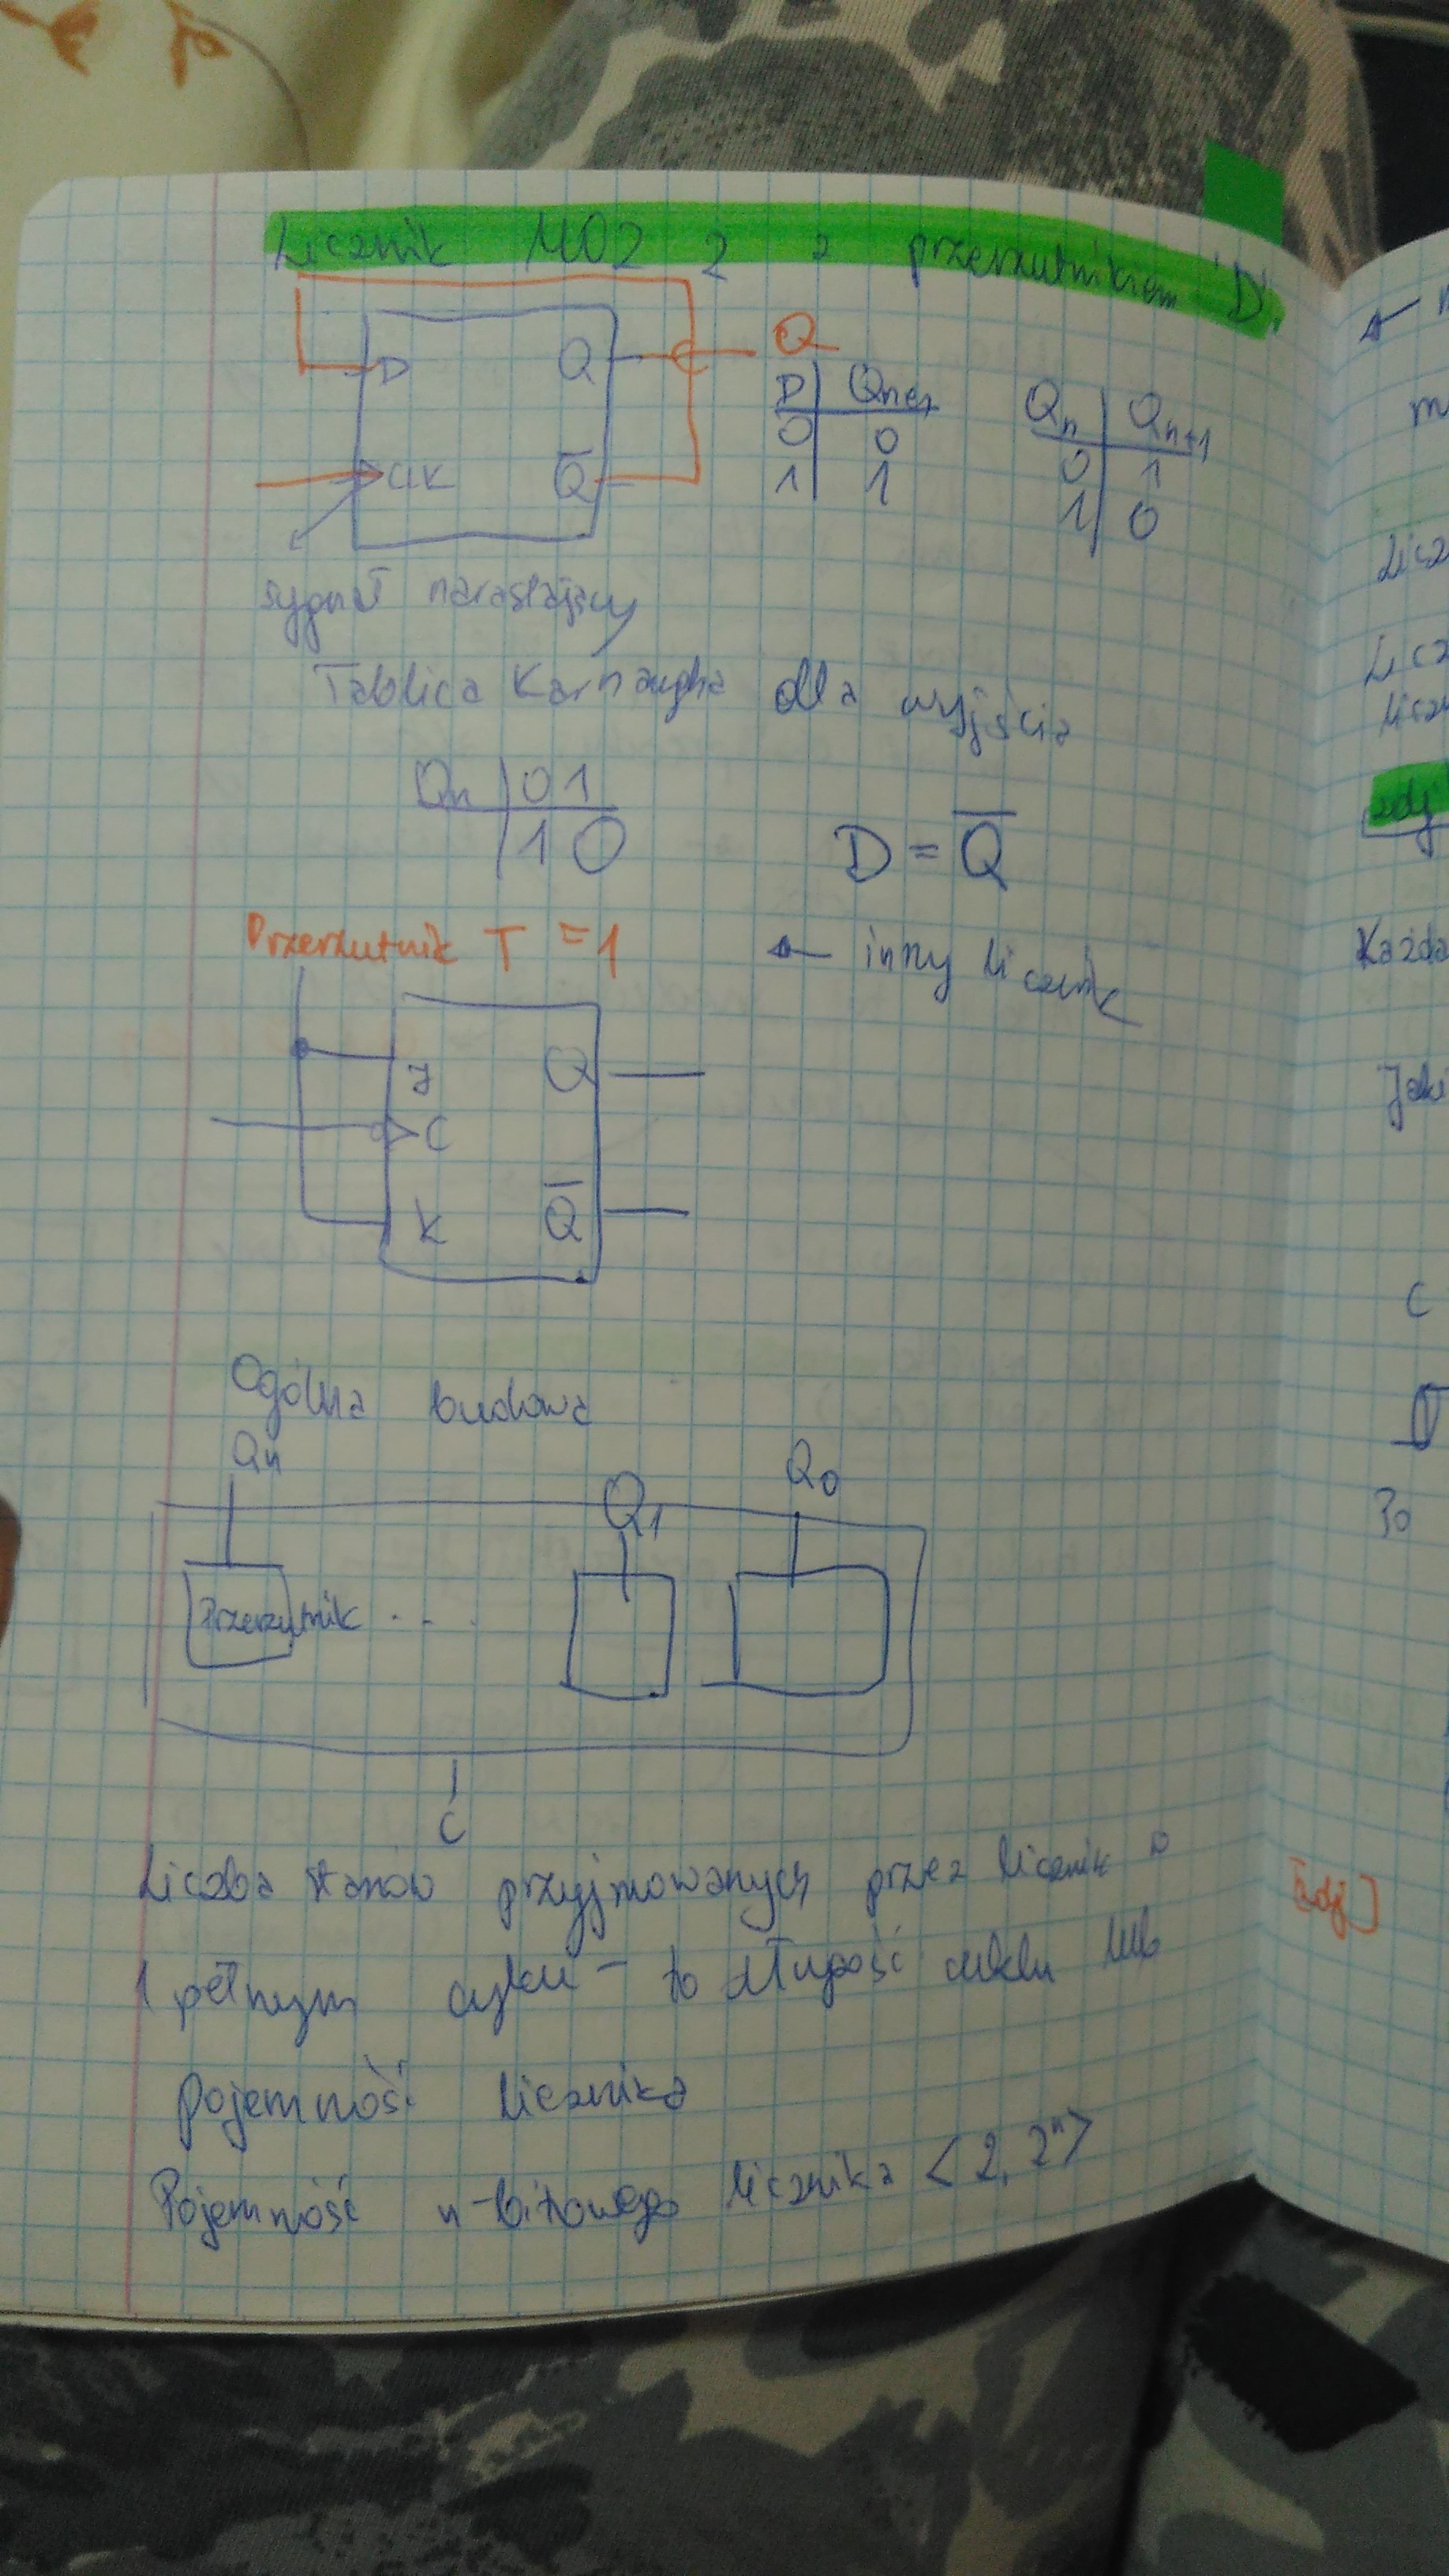 Licznik MO2 2 z przerzutnikiem 'D'
D Q Q
D Qn+1 Qn Qn+1
0 0 0 1
1 1 1 0
CLK Q̅
sygnał narastający
Tablica Karnaugha dla wyjścia
Qn 0 1
1 0
D = Q̅
Przerzutnik T = 1 ← inny licznik
J Q
C
K Q̅
Ogólna budowa
Qn Q1 Q0
Przerzutnik . . .
C
Liczba stanów przyjmowanych przez licznik w
1 pełnym cyklu - to długość cyklu lub
pojemność licznika
Pojemność n-bitowego licznika <2, 2ⁿ>
←
m
Licz
Licz
licz
zdj
Każda
Jaki
C
Po
[zdj]